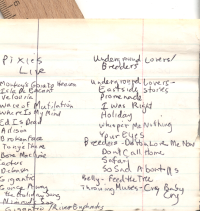 Pixies
Live
Monkeys Gone to Heaven
Isla De Encant
Velouria
Wave of Mutilation
Where Is My Mind
Ed Is Dead
Allison
Broken Face
Tony's Theme
Bone Machine
Cactus
Debaser
Gigantic
Gouge Away
Gigantic / River Euphrates
Underground Lovers/
Breeders
Underground Lovers -
Eastside Stories
Promenade
I Was Right
Holiday
Whisper Me Nothing
Your Eyes
Breeders - Do You Love Me Now
Don't Call Home
Safari
So Sad About Us
Belly - Feed the Tree
Throwing Muses - Cry Baby
Cry